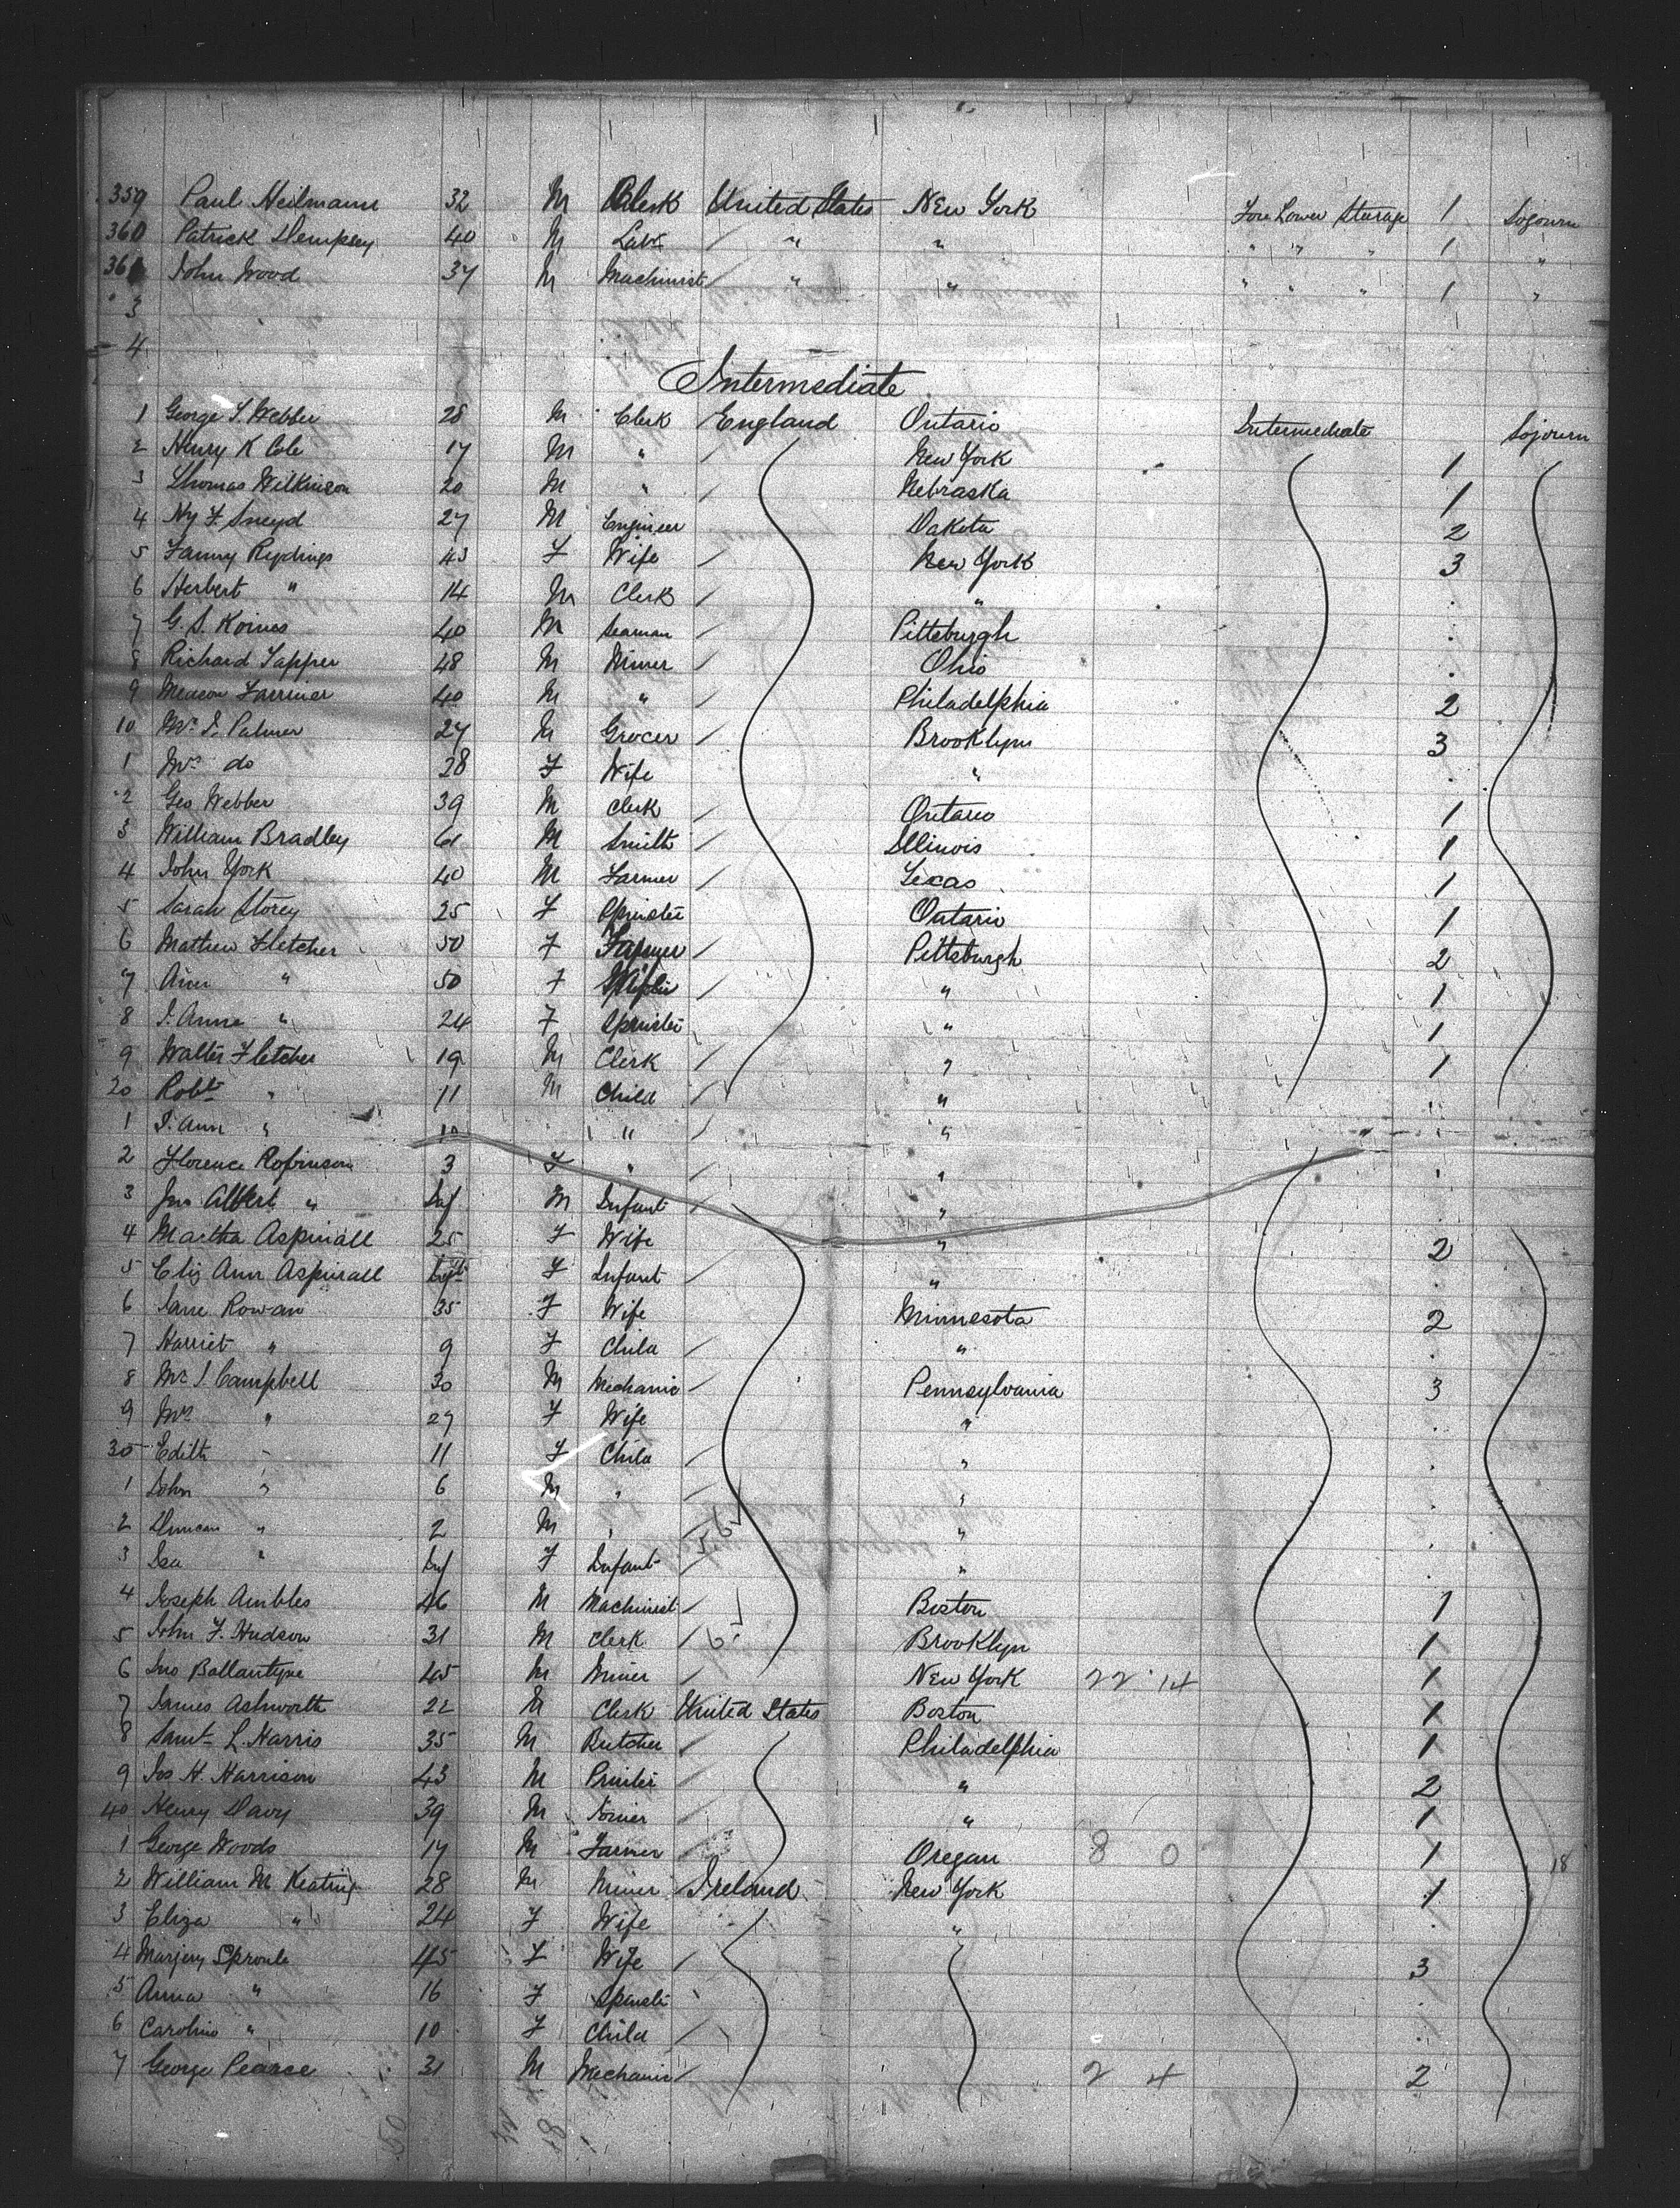 359 Paul Heilmann 32 M Clerk United States New York Fore Lower Sterage 1 Sojourn
360 Patrick Dempsey 40 M Labr / " " " " " 1 "
361 John Wood 37 M Machinist / " " " " " 1 "
3
4
Intermediate
1 George S. Webber 28 M Clerk England Ontario Intermediate Sojourn
2 Henry K Cole 17 M " / New York 1
3 Thomas Wilkinson 20 M " / Nebraska 1
4 Hy F. Sneyd 27 M Engineer Dakota 2
5 Fanny Rydings 43 F Wife / New York 3
6 Herbert " 14 M Clerk / "
7 G. S. 40 M Seaman / Pittsburgh
8 Richard Tapper 48 M Miner / Ohio
9 40 M " Philadelphia 2
10 Mr. J. Palmer 27 M Grocer / Brooklyn 3
1 Mrs do 28 F Wife "
2 Geo Webber 39 M Clerk / Ontario 1
3 William Bradley 61 M Smith / Illinois 1
4 John York 40 M Farmer / Texas 1
5 Sarah Storey 25 F Spinster Ontario 1
6 Mathew Fletcher 50 F / Pittsburgh 2
7 Ann " 50 F / " 1
8 J. Anne " 24 F Spinster " 1
9 Walter Fletcher 19 M Clerk / " 1
20 Robt " 11 M Child / "
1 J. Ann " 10 " / "
2 Florence Robinson 3 F " / "
3 Jno Albert " Inf M Infant / "
4 Martha Aspinall 25 F Wife " 2
5 Eliz Ann Aspinall Inft F Infant / "
6 Jane Rowan 35 F Wife Minnesota 2
7 Harriet " 9 F Child / "
8 Mr J. Campbell 30 M Mechanic / Pennsylvania 3
9 Mrs " 27 F Wife "
30 Edith " 11 F Child / "
1 John " 6 M " / "
2 Duncan " 2 M " / "
3 Isa " Inf F Infant / "
4 Joseph Ambles 46 M Machinist / Boston 1
5 John F. Hudson 31 M Clerk / Brooklyn 1
6 Jno Ballantyne 45 M Miner / New York 22 14 1
7 James Ashworth 22 M Clerk United States Boston 1
8 Saml L. Harris 35 M Butcher / Philadelphia 1
9 Jos H. Harrison 43 M Printer / " 2
40 Henry Davy 39 M Joiner / " 1
1 George Woods 17 M Farmer / Oregan 8 0 1 18
2 William M Keating 28 M Miner Ireland New York 1
3 Eliza " 24 F Wife "
4 Marjery Sproule 45 F Wife / 3
5 Anna " 16 F Spinster
6 Caroline " 10 F Child /
7 George Pearce 31 M Mechanic / 2 4 2